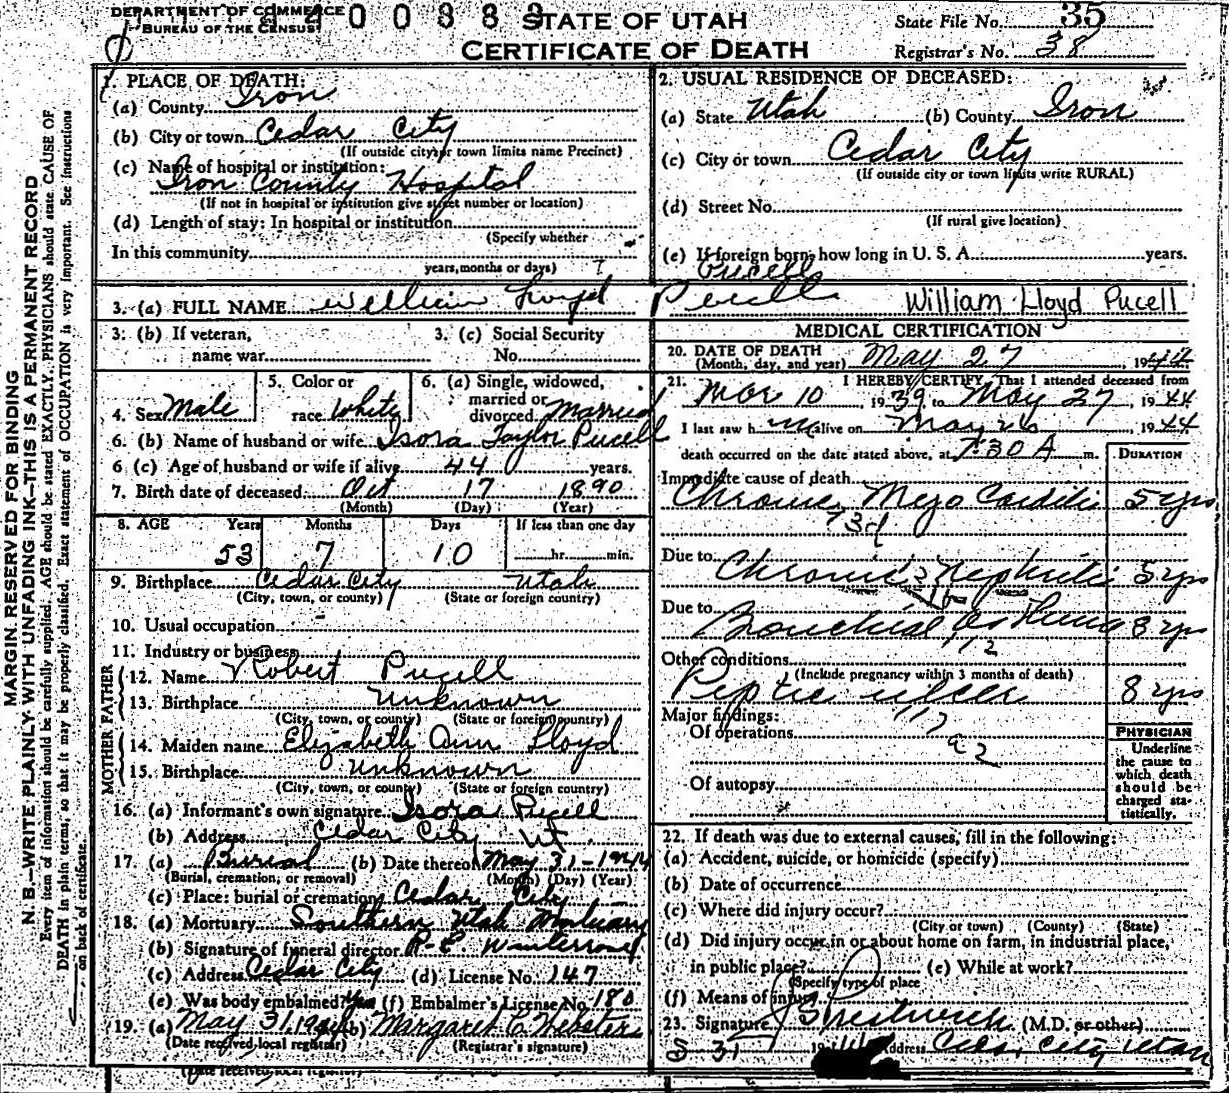 DEPARTMENT OF COMMERCE
BUREAU OF THE CENSUS
STATE OF UTAH
CERTIFICATE OF DEATH
State File No. 35
Registrar's No. 38
MARGIN RESERVED FOR BINDING
N. B.—WRITE PLAINLY WITH UNFADING INK—THIS IS A PERMANENT RECORD
Every item of information should be carefully supplied. AGE should be stated EXACTLY. PHYSICIANS should state CAUSE OF
DEATH in plain terms, so that it may be properly classified. Exact statement of OCCUPATION is very important. See instructions
on back of certificate.
1. PLACE OF DEATH:
(a) County Iron
(b) City or town Cedar City
(If outside city or town limits name Precinct)
(c) Name of hospital or institution:
Iron County Hospital
(If not in hospital or institution give street number or location)
(d) Length of stay: In hospital or institution
(Specify whether
In this community
years, months or days)
2. USUAL RESIDENCE OF DECEASED:
(a) State Utah (b) County Iron
(c) City or town Cedar City
(If outside city or town limits write RURAL)
(d) Street No.
(If rural give location)
(e) If foreign born, how long in U. S. A. years.
Pucell
3. (a) FULL NAME William Lloyd Pucell William Lloyd Pucell
3. (b) If veteran,
name war
3. (c) Social Security
No.
4. Sex Male
5. Color or
race White
6. (a) Single, widowed,
married or
divorced Married
6. (b) Name of husband or wife Isora Taylor Pucell
6 (c) Age of husband or wife if alive 44 years.
7. Birth date of deceased Oct 17 1890
(Month) (Day) (Year)
8. AGE Years Months Days If less than one day
53 7 10 hr. min.
9. Birthplace Cedar City Utah
(City, town, or county) (State or foreign country)
10. Usual occupation
11. Industry or business
FATHER
12. Name Robert Pucell
13. Birthplace Unknown
(City, town, or county) (State or foreign country)
MOTHER
14. Maiden name Elizabeth Ann Lloyd
15. Birthplace Unknown
(City, town, or county) (State or foreign country)
16. (a) Informant's own signature Isora Pucell
(b) Address Cedar City Ut.
17. (a) Burial (b) Date thereof May 31-1944
(Burial, cremation, or removal) (Month) (Day) (Year)
(c) Place: burial or cremation Cedar City
18. (a) Mortuary Southern Utah Mortuary
(b) Signature of funeral director
(c) Address Cedar City (d) License No. 147
(e) Was body embalmed? Yes (f) Embalmer's License No. 180
19. (a) May 31, 1944 (b) Margaret E. Webster
(Date received local registrar) (Registrar's signature)
MEDICAL CERTIFICATION
20. DATE OF DEATH
(Month, day, and year) May 27, 1944
21. I HEREBY CERTIFY, That I attended deceased from
Mar 10, 1939 to May 27, 1944
I last saw him alive on May 26, 1944
death occurred on the date stated above, at 7:30 A m.
DURATION
Immediate cause of death
Chronic Myo Carditis 5 yrs
Due to Chronic Nephritis 5 yrs
Due to
Bronchial Asthma 8 yrs
112
Other conditions
(Include pregnancy within 3 months of death)
Peptic ulcer 8 yrs
117
Major findings:
Of operations
92
Of autopsy
PHYSICIAN
Underline
the cause to
which death
should be
charged sta-
tistically.
22. If death was due to external causes, fill in the following:
(a) Accident, suicide, or homicide (specify)
(b) Date of occurrence
(c) Where did injury occur?
(City or town) (County) (State)
(d) Did injury occur in or about home on farm, in industrial place,
in public place? (e) While at work?
(Specify type of place
(f) Means of injury
23. Signature Prestwich (M.D. or other)
5 31 Address Cedar City Utah
(Date received local registrar)